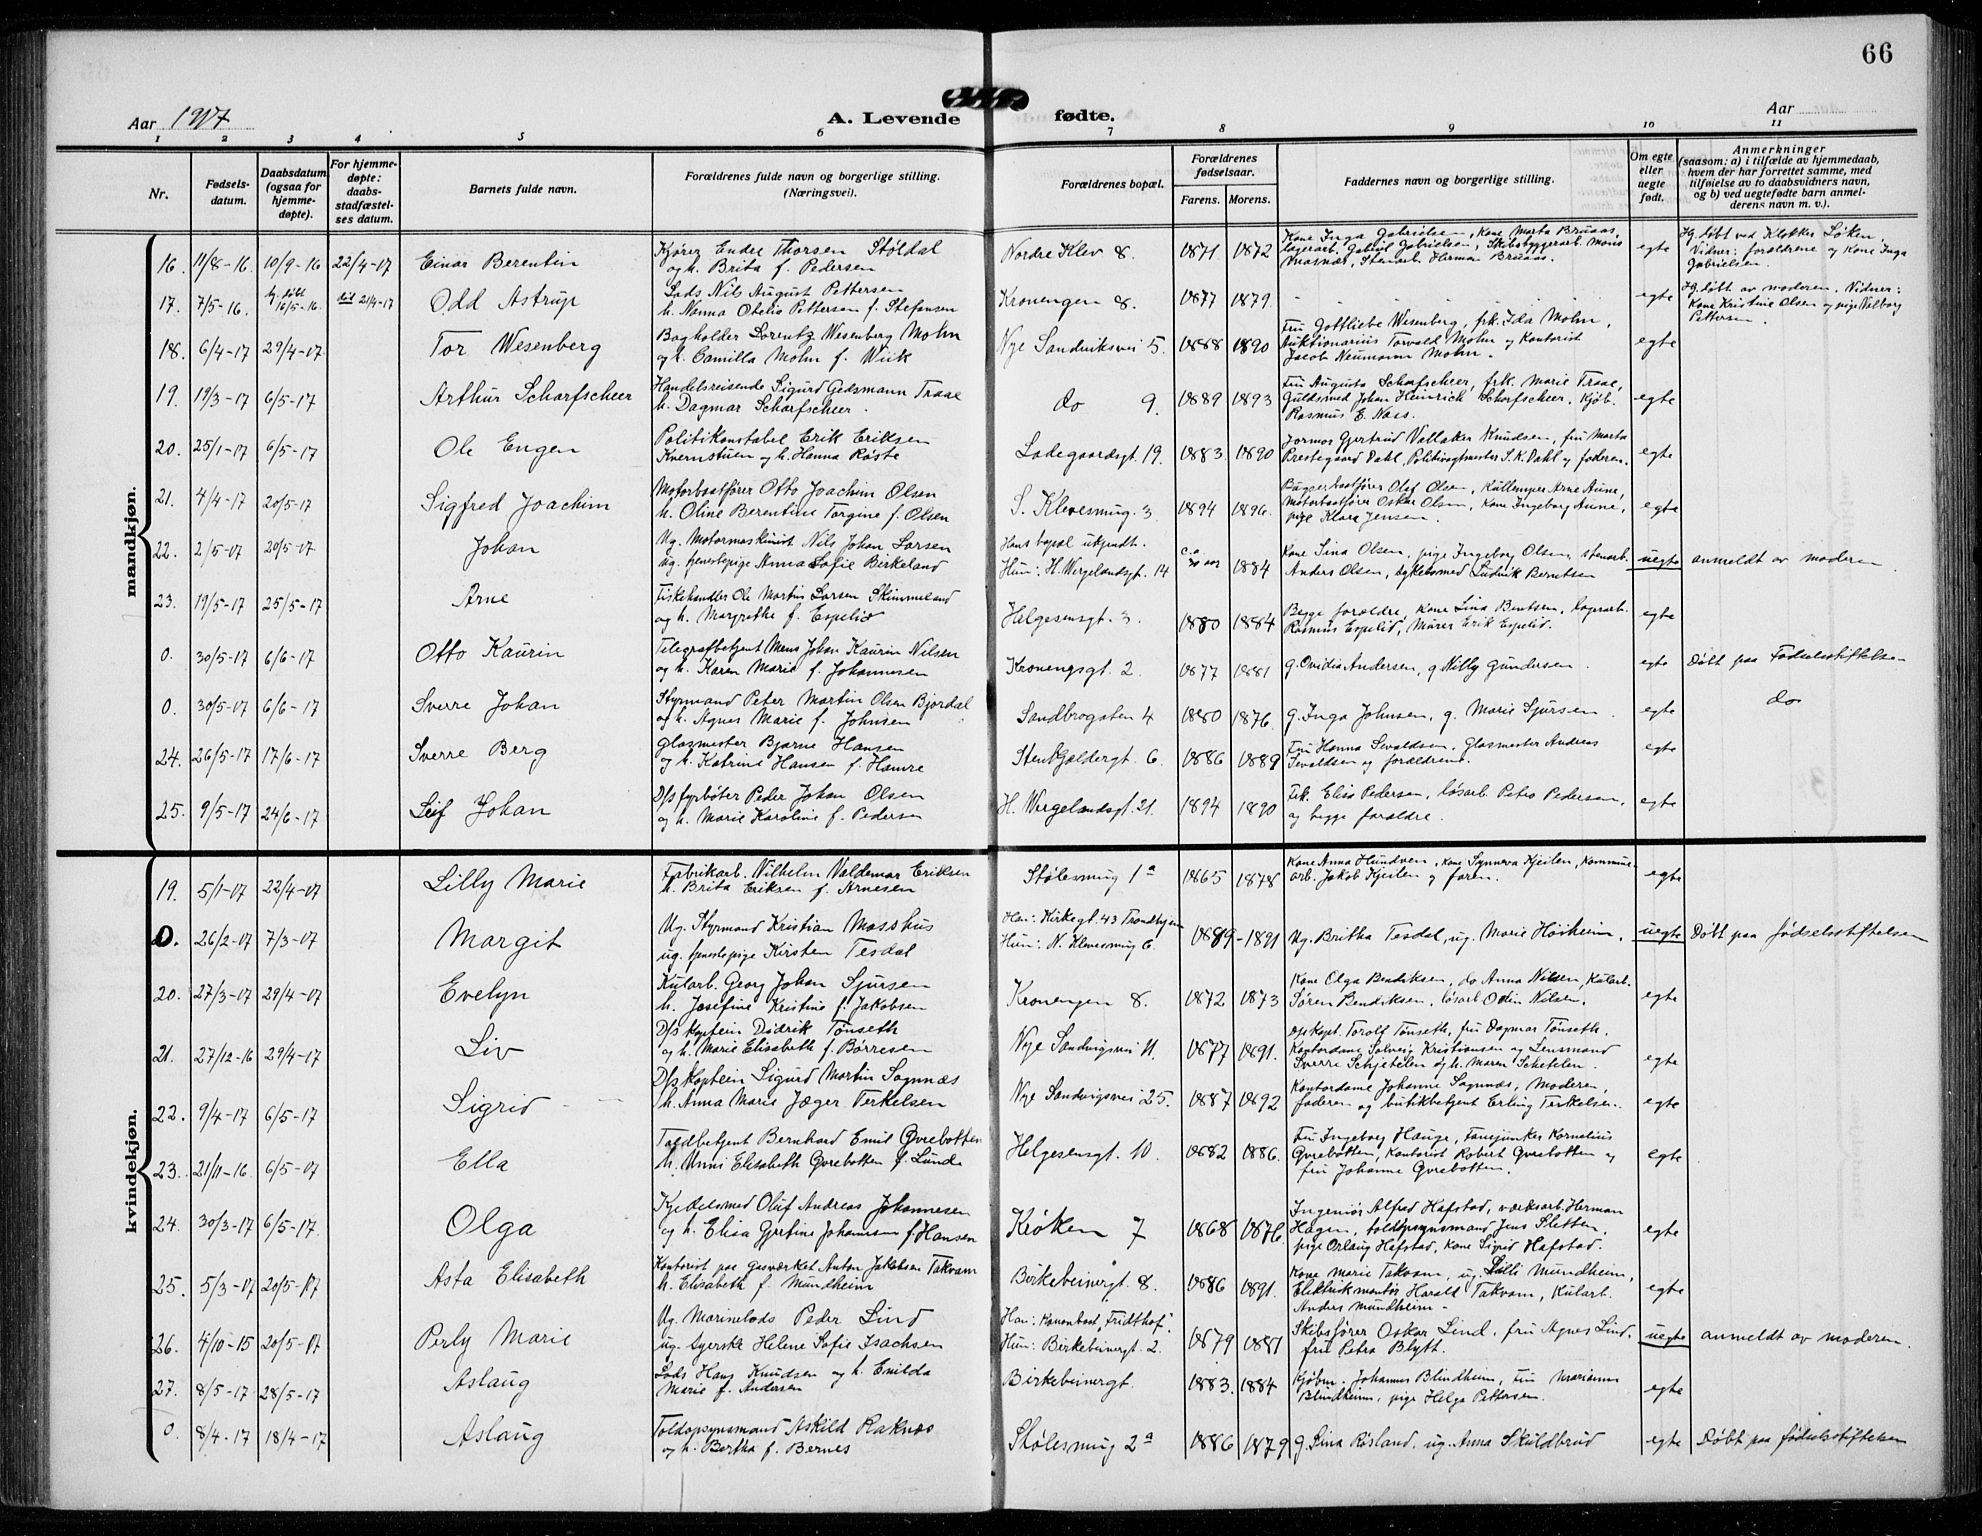 66
Aar 1917
A. Levende fødte.
Aar
1 2 3 4 5 6 7 8 9 10 11
Nr.
Fødsels-
datum.
Daabsdatum
(ogsaa for
hjemme-
døpte).
For hjemme-
døpte:
daabs-
stadfæstel-
ses datum.
Barnets fulde navn.
Forældrenes fulde navn og borgerlige stilling.
(Næringsvei).
Forældrenes bopæl.
Forældrenes
fødselsaar.
Farens. Morens.
Faddernes navn og borgerlige stilling.
Om egte
eller
uegte
født.
Anmerkninger
(saasom: a) i tilfælde av hjemmedaab,
hvem der har forrettet samme, med
tilføielse av to daabsvidners navn,
og b) ved uegtefødte barn anmel-
derens navn m. v.).
mandkjøn.
16. 11/8-16. 10/9-16 22/4-17 Einar Berentin
Kjører Endre Thorsen Støldal
og h. Brita f. Pedersen
Nordre Klev 8. 1871. 1872
Kone Inga Gabrielsen, Kone Marta Bruaas,
lagerarb. Gabriel Gabrielsen, Skibsbyggerarb. Mons
Stenarb. Herman Bruaas.
egte
Hj. døbt ved Klokker Søken.
Vidner: forældrene og Kone Inga
Gabrielsen.
17. 7/5-16. hj. døbt 16/5-16. 21/4-17 Odd Astrup
Lods Nils August Pettersen
h. Nanna Otelia Pettersen f. Stefansen
Kronengen 8. 1877 1879.
egte
Hj. døbt av moderen. Vidner:
Kone Kristine Olsen og pige Valborg
Pettersen.
18. 6/4-17 29/4-07. Tor Wesenberg
Bogholder Lorentz Wesenberg Mohn
og h. Camilla Mohn f. Wiik
Nye Sandviksvei 5. 1888 1890
Fru Gottliebe Wesenberg, frk. Ida Mohn,
Auktionarius Torvald Mohn og Kontorist
Jacob Neumann Mohn.
egte
19. 19/3-17 6/5-17 Arthur Scharfscheer
Handelsreisende Sigurd Gedsmann Traae
h. Dagmar Scharfscheer.
do 9. 1889 1893
Fru Augusta Scharfscheer, frk. Marie Traae,
Guldsmed Johan Heinrich Scharfscheer, Kjøb.
Rasmus E. Næss.
egte
20. 25/1-17 6/5-17 Ole Engen
Politikonstabel Erik Eriksen
Kvernstuen og h. Hanna Røste
Ladegaardsgt. 19. 1883. 1890
Jormor Gjertrud Vallaker Knudsen, fru Marta
Prestegaard Dahl, Politivagtmester S. K. Dahl og faderen.
egte
21. 4/4-17 20/5-17 Sigfred Joachim
Motorbaatfører Otto Joachim Olsen
h. Oline Berentine Torgine f. Olsen
S. Klevesmug. 3 1894 1896.
Bugserbaatfører Olaf Olsen, Kullemper Arne Aune,
Motorbaatfører Oskar Olsen, Kone Ingeborg Aune,
pige Klara Jensen.
egte
22. 2/5-07 20/5-07. Johan
Ug. Motormaskinist Nils Johan Larsen
ug. tjenestepige Anna Sofie Birkeland
Hans bopæl ukjendt.
Hun: H. Wergelandsgt. 14 1884
Kone Lina Olsen, pige Ingeborg Olsen, stenarb.
Anders Olsen, sykebesmed Ludvik Berntsen
uegte anmeldt av moderen.
23. 19/5-17 25/5-17 Arne
Fiskehandler Ole Martin Larsen Skimmeland
og h. Margrethe f. Espelid
Helgesensgt. 3. 1880 1884
Begge forældre, Kone Lina Bentsen,
Rasmus Espelid, Murer Erik Espelid.
egte
0. 30/5-17 6/6-17 Otto Kaurin
Telegrafbetjent Mens Johan Kaurin Nilsen
og h. Karen Marie f. Johannesen
Kroneng​sgt. 2. 1877 1881
g. Ovidia Andersen, g Nilly Gundersen.
egte Døbt paa Fødselsstiftelsen
0. 30/5-07 6/6-17 Sverre Johan
Styrmand Peter Martin Olsen Bjordal
og h. Agnes Marie f. Johnsen
Sandbrogaten 4 1880 1876.
g. Inga Johnsen, g. Marie Sjursen.
egte do
24. 26/5-17 17/6-17 Sverre Berg
Glasmester Bjarne Hansen
og h. Katrine Hansen f. Hamre
Stenkjeldergt. 6. 1886 1889
Fru Hanna Sevaldsen, Glasmester Andreas
Sevaldsen og forældrene.
egte
25. 9/5-17 24/6-17 Leif Johan
D/s fyrbøter Peder Johan Olsen
og h. Marie Karoline f. Pedersen
H. Wergelandsgt. 21. 1894 1890
Frk. Elisa Pedersen, løsarb. Petra Pedersen,
og begge forældre.
egte
kvindekjøn.
19. 5/1-07 22/4-07 Lilly Marie
Fabrikarb. Vilhelm Valdemar Eriksen
h. Brita Eriksen f. Arnesen
Stølesmug 1a 1865 1878
Kone Anna Hundven, Kone Synneva Kjeilen, Kommune-
arb. Jakob Kjeilen og faren.
egte
0. 26/2-07 7/3-07 Margit
Ug. Styrmand Kristian Masshus
ug. tjenestepige Kirsten Tesdal
Han: Kirkegt. 43 Trondhjem
Hun: N. Klevesmug 6. 1889-1891
Ug. Britha Tesdal, ug. Marie Høiheim.
uegte Døbt paa fødselsstiftelsen
20. 27/3-07 29/4-07 Evelyn
Kularb. Georg Johan Sjursen
h. Josefine Kristine f. Jakobsen
Kronengen 8. 1872 1873
Kone Olga Bendiksen, do Anna Nilsen, Kularb.
Søren Bendiksen, løsarb. Odin Nilsen.
egte
21. 27/12-16 29/4-17 Liv
D/s Kaptein Didrik Tønseth
og h. Marie Elisabeth f. Børresen
Nye Sandvigsvei 11. 1877 1891.
D/s Kapt. Torolf Tønseth, fru Dagmar Tønseth.
Kontordame Solveig Kristiansen og Lensmand
Sverre Schjetelen og h. Maren Schetelen.
egte
22. 9/4-17 6/5-17 Sigrid
D/s Kaptein Sigurd Martin Sognnæs
h. Anna Marie Jæger Terkelsen
Nye Sandvigsvei 25. 1887 1892
Kontordame Johanne Sognnæs, Moderen,
faderen og butikbetjent Erling Terkelsen.
egte
23. 21/11-16 6/5-07 Ella
Toldbetjent Bernhard Emil Øvrebotten
h. Unni Elisabeth Øvrebotten f. Lunde
Helgesensgt. 10. 1882 1886.
Fru Ingeborg Hauge, Fanejunker Kornelius
Øvrebotten, Kontorist Robert Øvrebotten og
fru Johanne Øvrebotten.
egte
24. 30/3-17 6/5-17. Olga
Kjedelsmed Oluf Andreas Johannesen
og h. Elisa Gjertine Johannesen f. Hansen
Krøken 7 1868 1876.
Ingeniør Alfred Hafstad, værksarb. Herman
Hagen, toldopsynsmand Jens Sletten,
pige Orlaug Hafstad, Kone Sigrid Hafstad.
egte
25. 5/3-07 20/5-17 Asta Elisabeth
Kontorist paa gasværket Anton Jakobsen Takvam
h. Elisabeth f. Mundheim
Birkebeinergt. 8. 1886 1891.
Kone Marie Takvam, ug. Lilli Mundheim,
Elektrikmontør Harald Takvam, Kularb.
Anders Mundheim.
egte
26. 4/10-15 20/5-17 Perly Marie
Ug. Marinelods Peder Lind
ug. syerske Helene Sofie Isachsen
Han: Kanonbaat "Fridthof".
Hun: Birkebeinergt. 2. 1879 1881
Skibsfører Oskar Lind, fru Agnes Lind.
fru Petra Blytt.
uegte anmeldt av moderen.
27. 8/5-17 28/5-17 Aslaug
Lods Hans Knudsen og h. Enilda
Marie f. Andersen
Birkebeinergt. 1883. 1884
Kjøbm. Johannes Blindheim, fru Marianne
Blindheim, pige Helga Pettersen.
egte
0. 8/4-17 18/4-17 Aslaug
Toldopsynsmand Askild Raknæs
og h. Bertha f. Bernes
Stølesmug 2a 1886 1879
g. Lina Røsland, ug. Anna Skuldbrud
egte Døbt paa fødselsstiftelsen